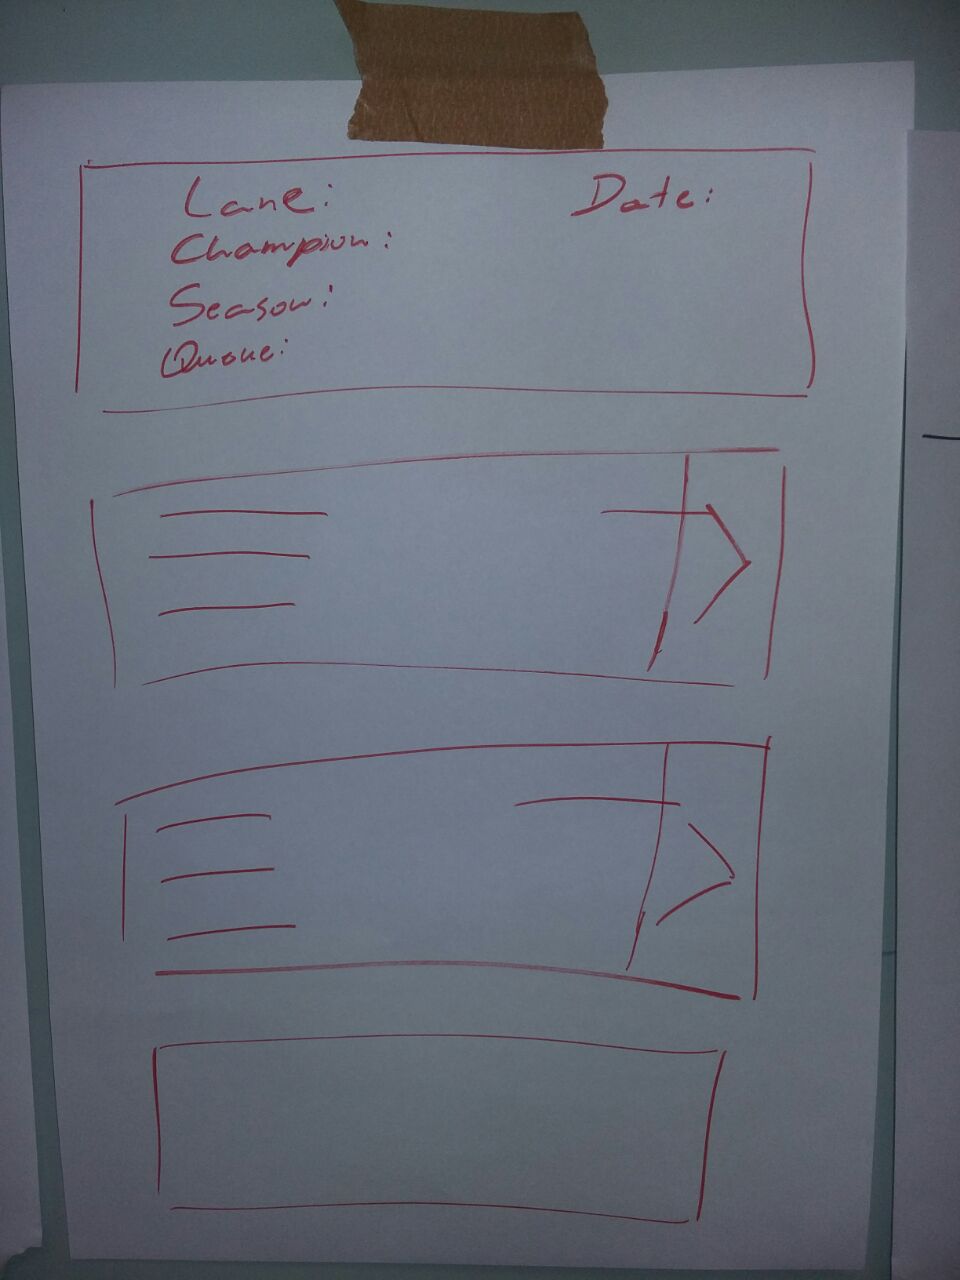 Lane:
Date:
Champion:
Season:
Queue: